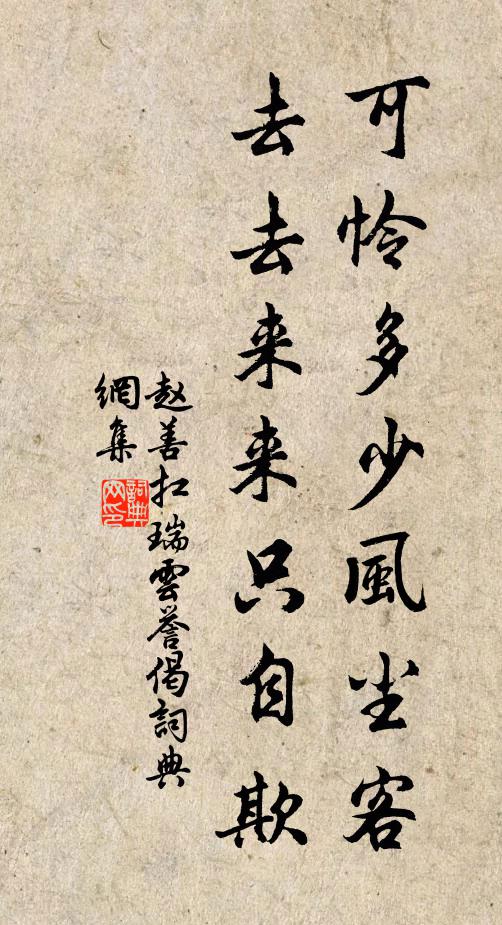 可怜多少風尘客
去去来来只自欺
赵善扛瑞雲誉偈詞典
網集
詞典
网印